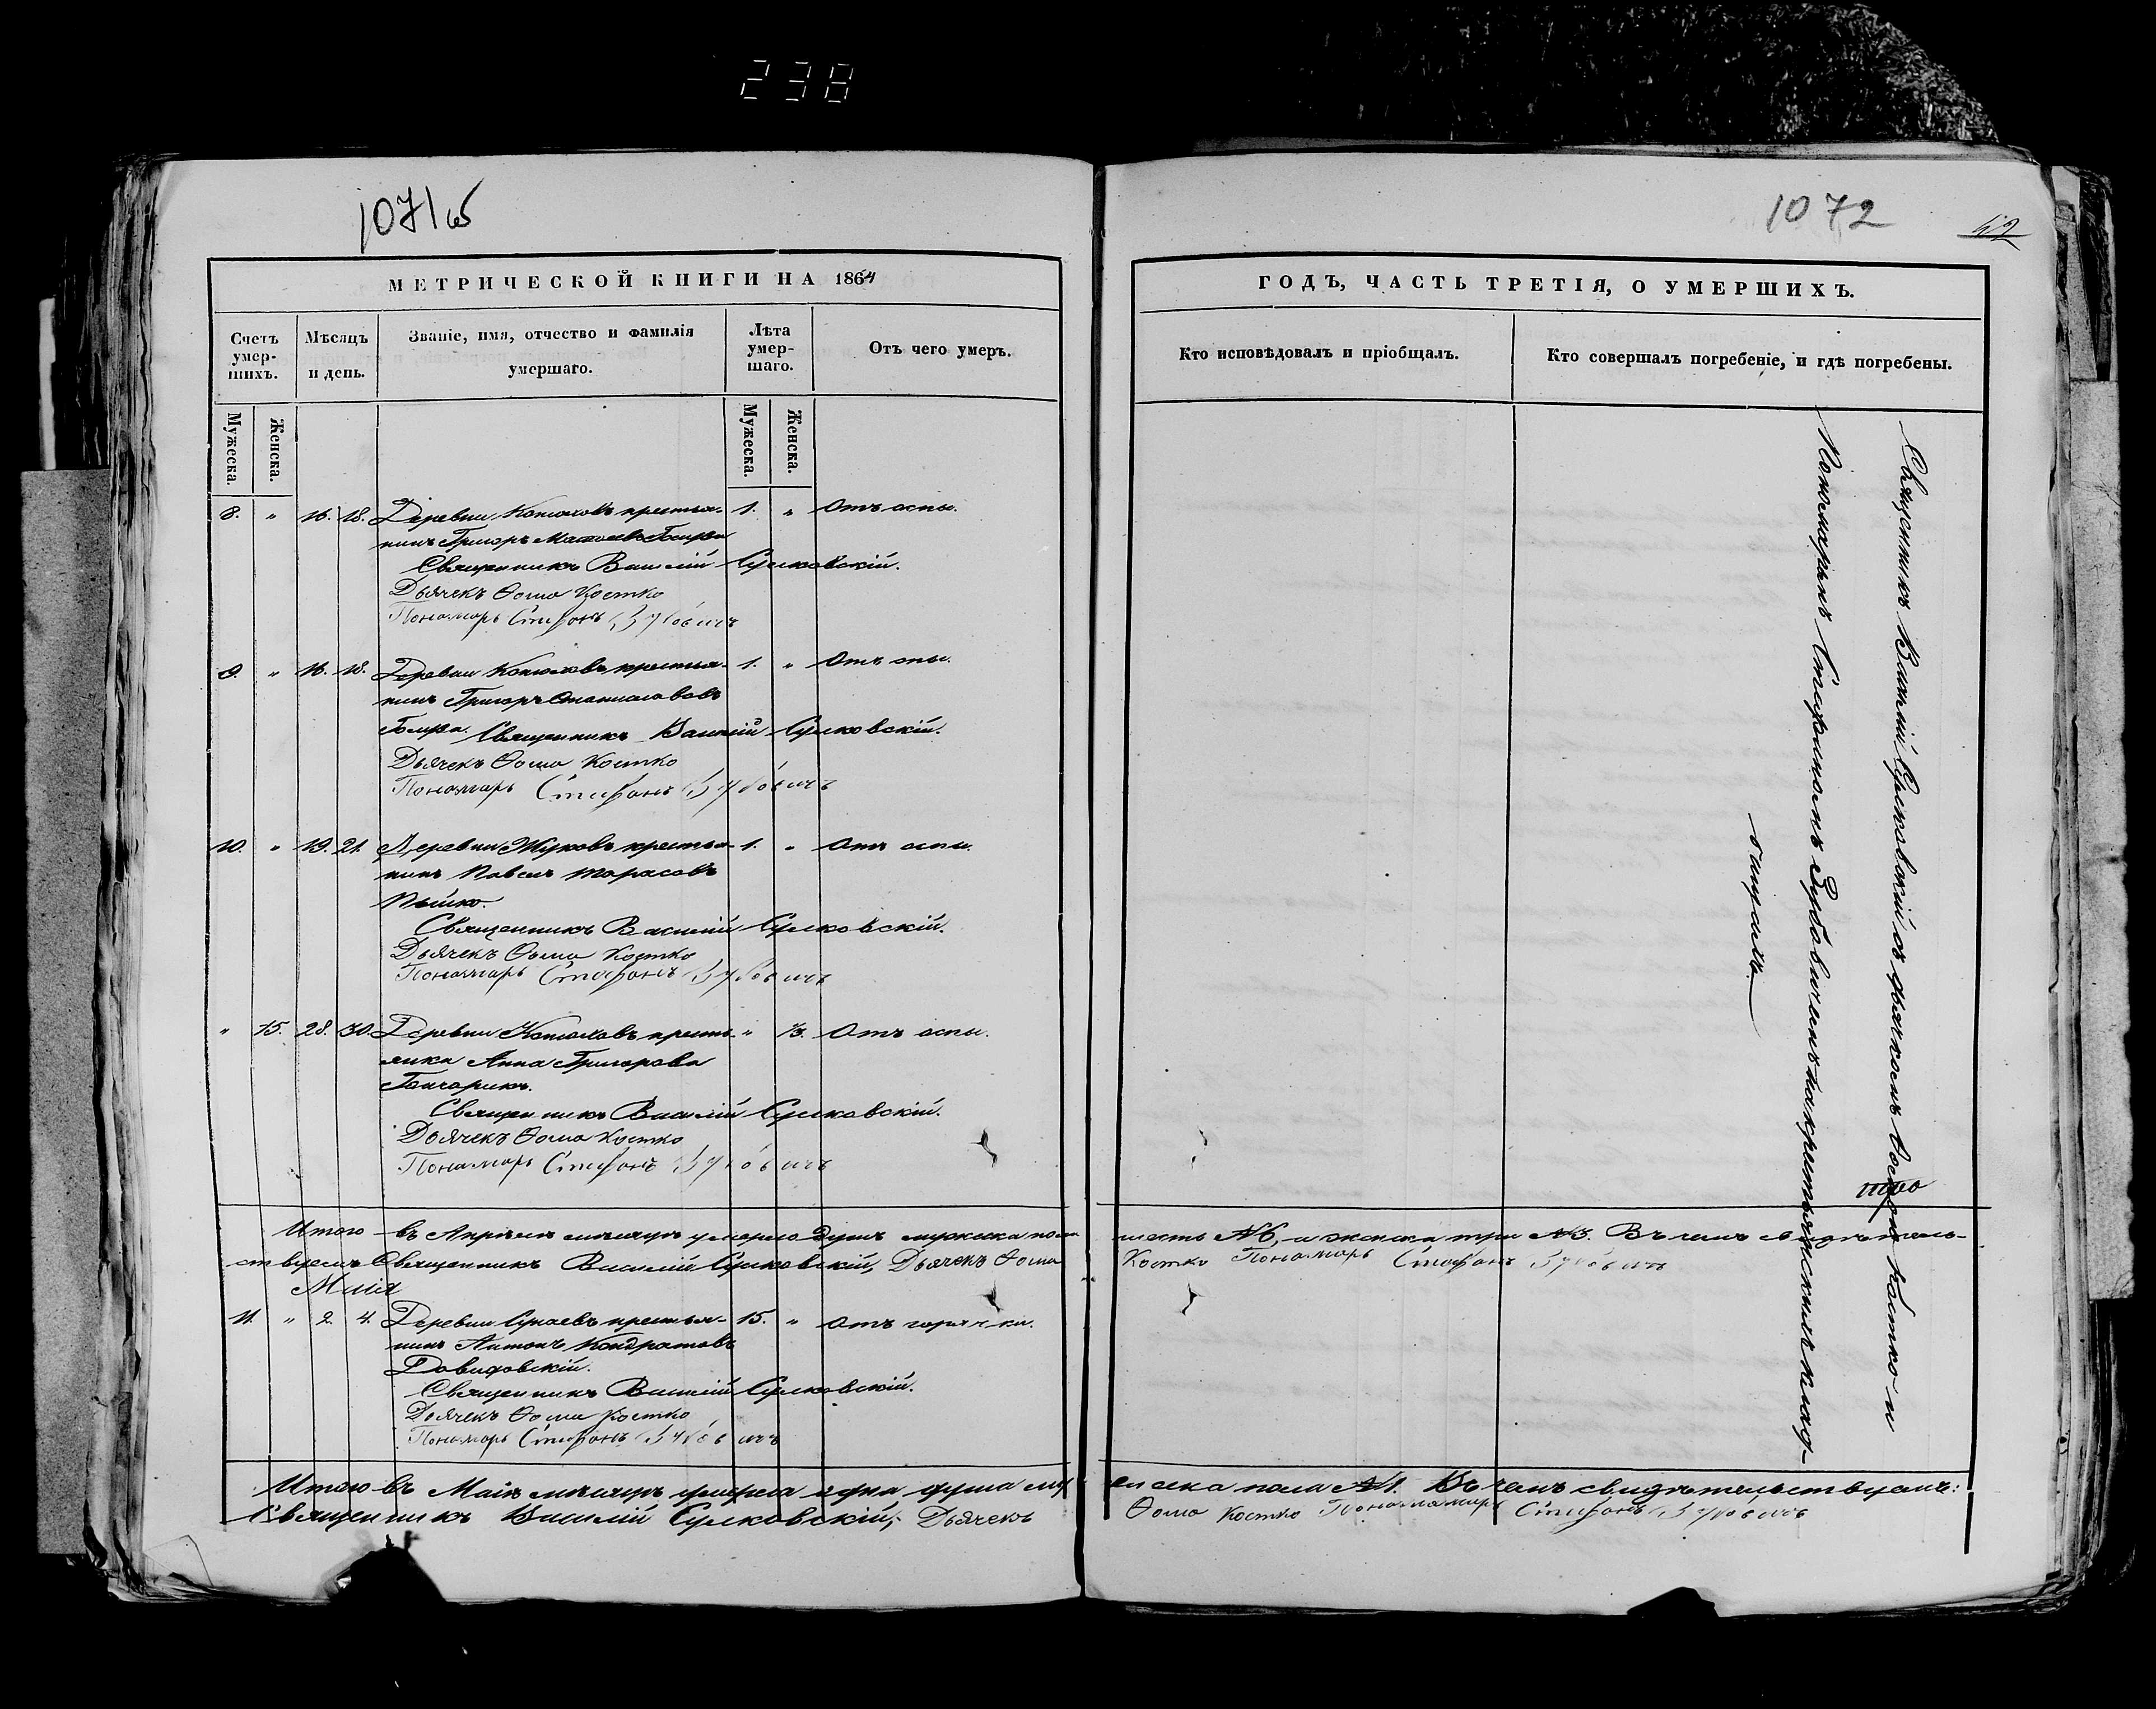 238
1071об
МЕТРИЧЕСКОЙ КНИГИ НА 1864
Счетъ умер-шихъ.
Мѣсяцъ и день.
Званіе, имя, отчество и фамилія умершаго.
Лѣта умер-шаго.
Отъ чего умеръ.
Мужеска.
Женска.
Мужеска.
Женска.
8. " 16. 18. Деревни крестья- 1. " Отъ оспы.
нинъ Григоръ
Священникъ Василій Сулковскій.
Дьячекъ Ѳома Костко
Пономарь Стефанъ Зубовичъ
9. " 16. 18. Деревни крестья- 1. " Отъ
нинъ Григоръ Станиславовъ
Священникъ Василій Сулковскій.
Дьячекъ Ѳома Костко
Пономарь Стефанъ Зубовичъ
10. " 19. 21. Деревни Жуковъ крестья- 1. " Отъ оспы.
нинъ Павелъ Тарасовъ
Священникъ Василій Сулковскій.
Дьячекъ Ѳома Костко
Пономарь Стефанъ Зубовичъ
" 15. 28. 30. Деревни кресть- " 13. Отъ оспы.
янка Анна Григорова
Гончарикъ.
Священникъ Василій Сулковскій.
Дьячекъ Ѳома Костко
Пономарь Стефанъ Зубовичъ
Итого въ Апрѣлѣ мѣсяцѣ умерло душъ мужеска пола
ствуемъ Священникъ Василій Сулковскій, Дьячекъ Ѳома
Маія
11. " 2. 4. Деревни крестья- 15. " Отъ горячки.
нинъ Антонъ Кондратовъ
Давидовскій.
Священникъ Василій Сулковскій.
Дьячекъ Ѳома Костко
Пономарь Стефанъ Зубовичъ
Итого въ Маіѣ мѣсяцѣ умерла одна душа муж
Священникъ Василій Сулковскій, Дьячекъ
1072
42
ГОДЪ, ЧАСТЬ ТРЕТІЯ, О УМЕРШИХЪ.
Кто исповѣдовалъ и пріобщалъ.
Кто совершалъ погребеніе, и гдѣ погребены.
Священникъ Василій Сулковскій съ дьячкомъ Ѳомою Костко и
Пономаремъ Стефаномъ Зубовичемъ на крестьянскихъ клад-
бищахъ
шесть №6, и женска три №3. Въ чемъ свидѣтель-
Костко Пономарь Стефанъ Зубовичъ
еска пола №1. Въ чемъ свидѣтельствуемъ:
Ѳома Костко Пономарь Стефанъ Зубовичъ